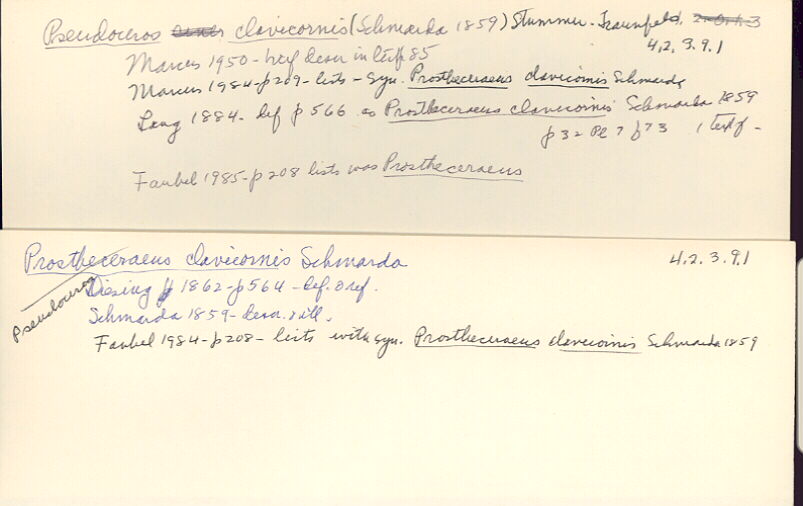 Pseudoceros clavicornis (Schmarda 1859) Stummer-Traunfels.
4.2.3.9.1
Marcus 1950- key descr in list p 85
Marcus 1984-p209-lists-syn. Prostheceraeus clavicornis Schmarda
Lang 1884- def p 566 as Prostheceraeus clavicornis Schmarda 1859
p32 Pl 7 f73 1 textf-
Faubel 1985-p208 lists was Prostheceraeus
Prostheceraeus clavicornis Schmarda 4.2.3.9.1
Pseudoceros
Diesing 1862-p564-def. & ref.
Schmarda 1859-descr. & ill.
Faubel 1984-p208- lists with syn. Prostheceraeus clavicornis Schmarda 1859